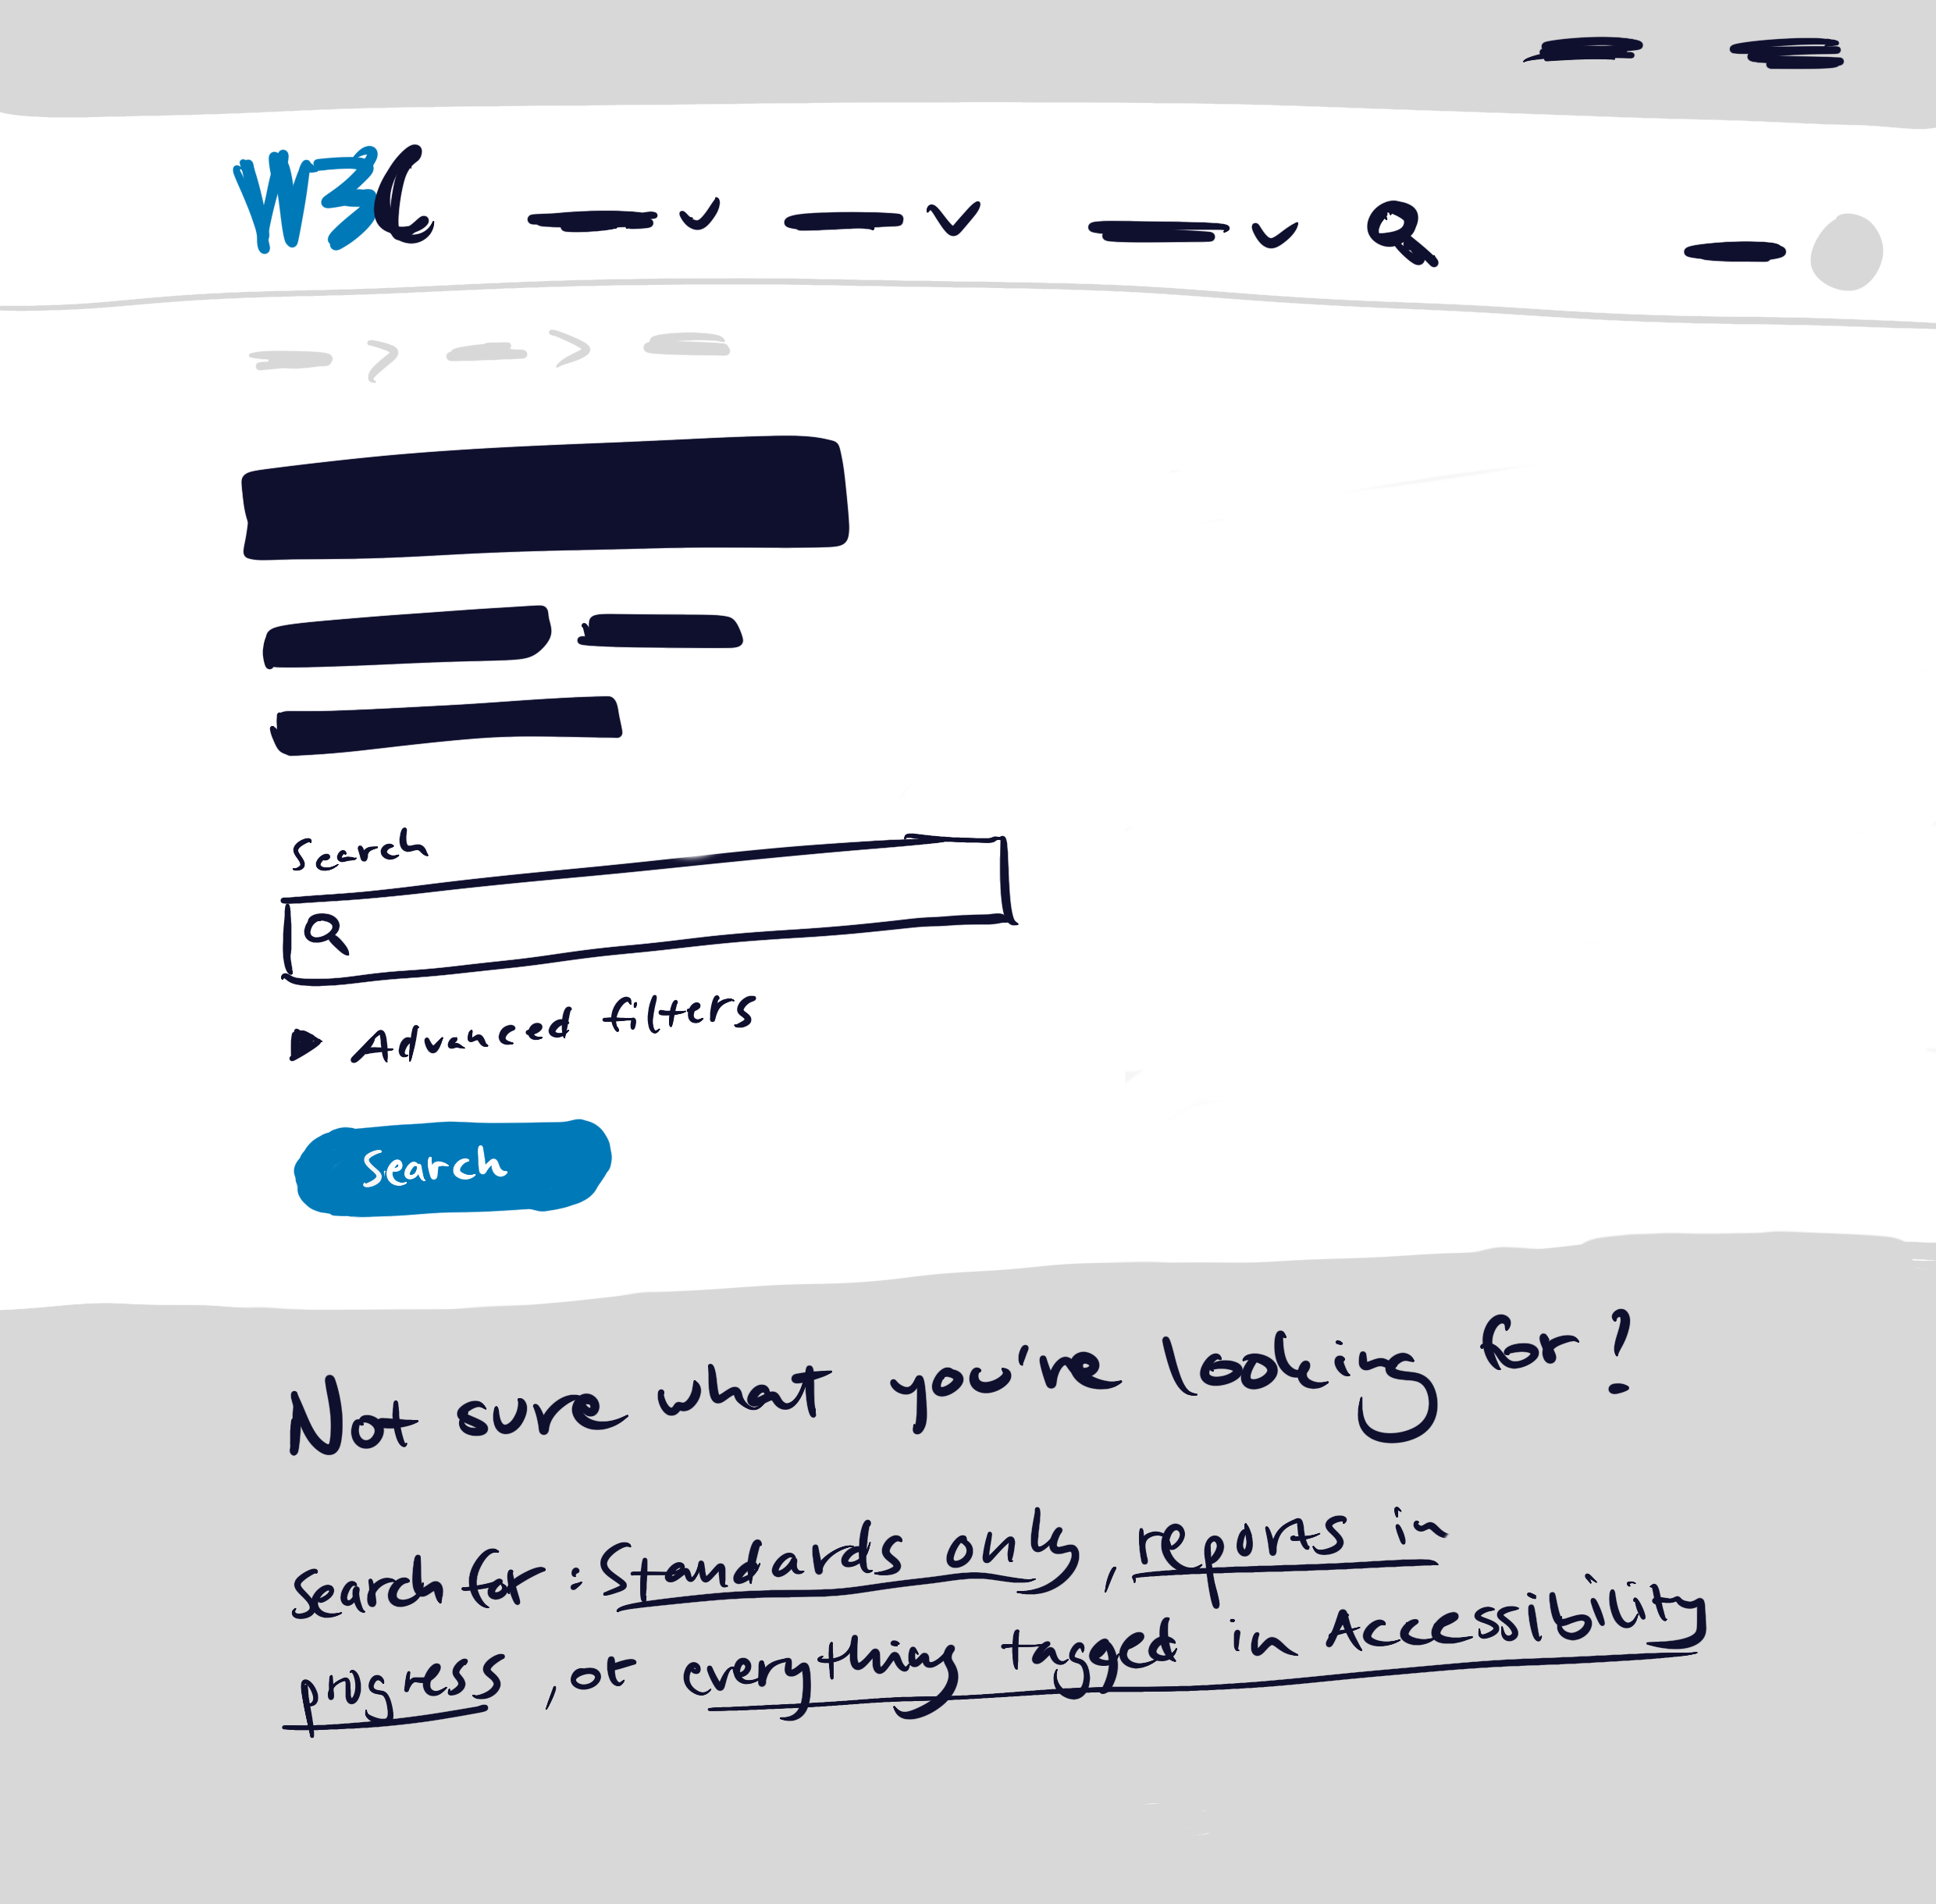 W3C
Search
Advanced filters
Search
Not sure what you're looking for?
search for: Standards only, reports in
progress, or everything tagged in Accessibility